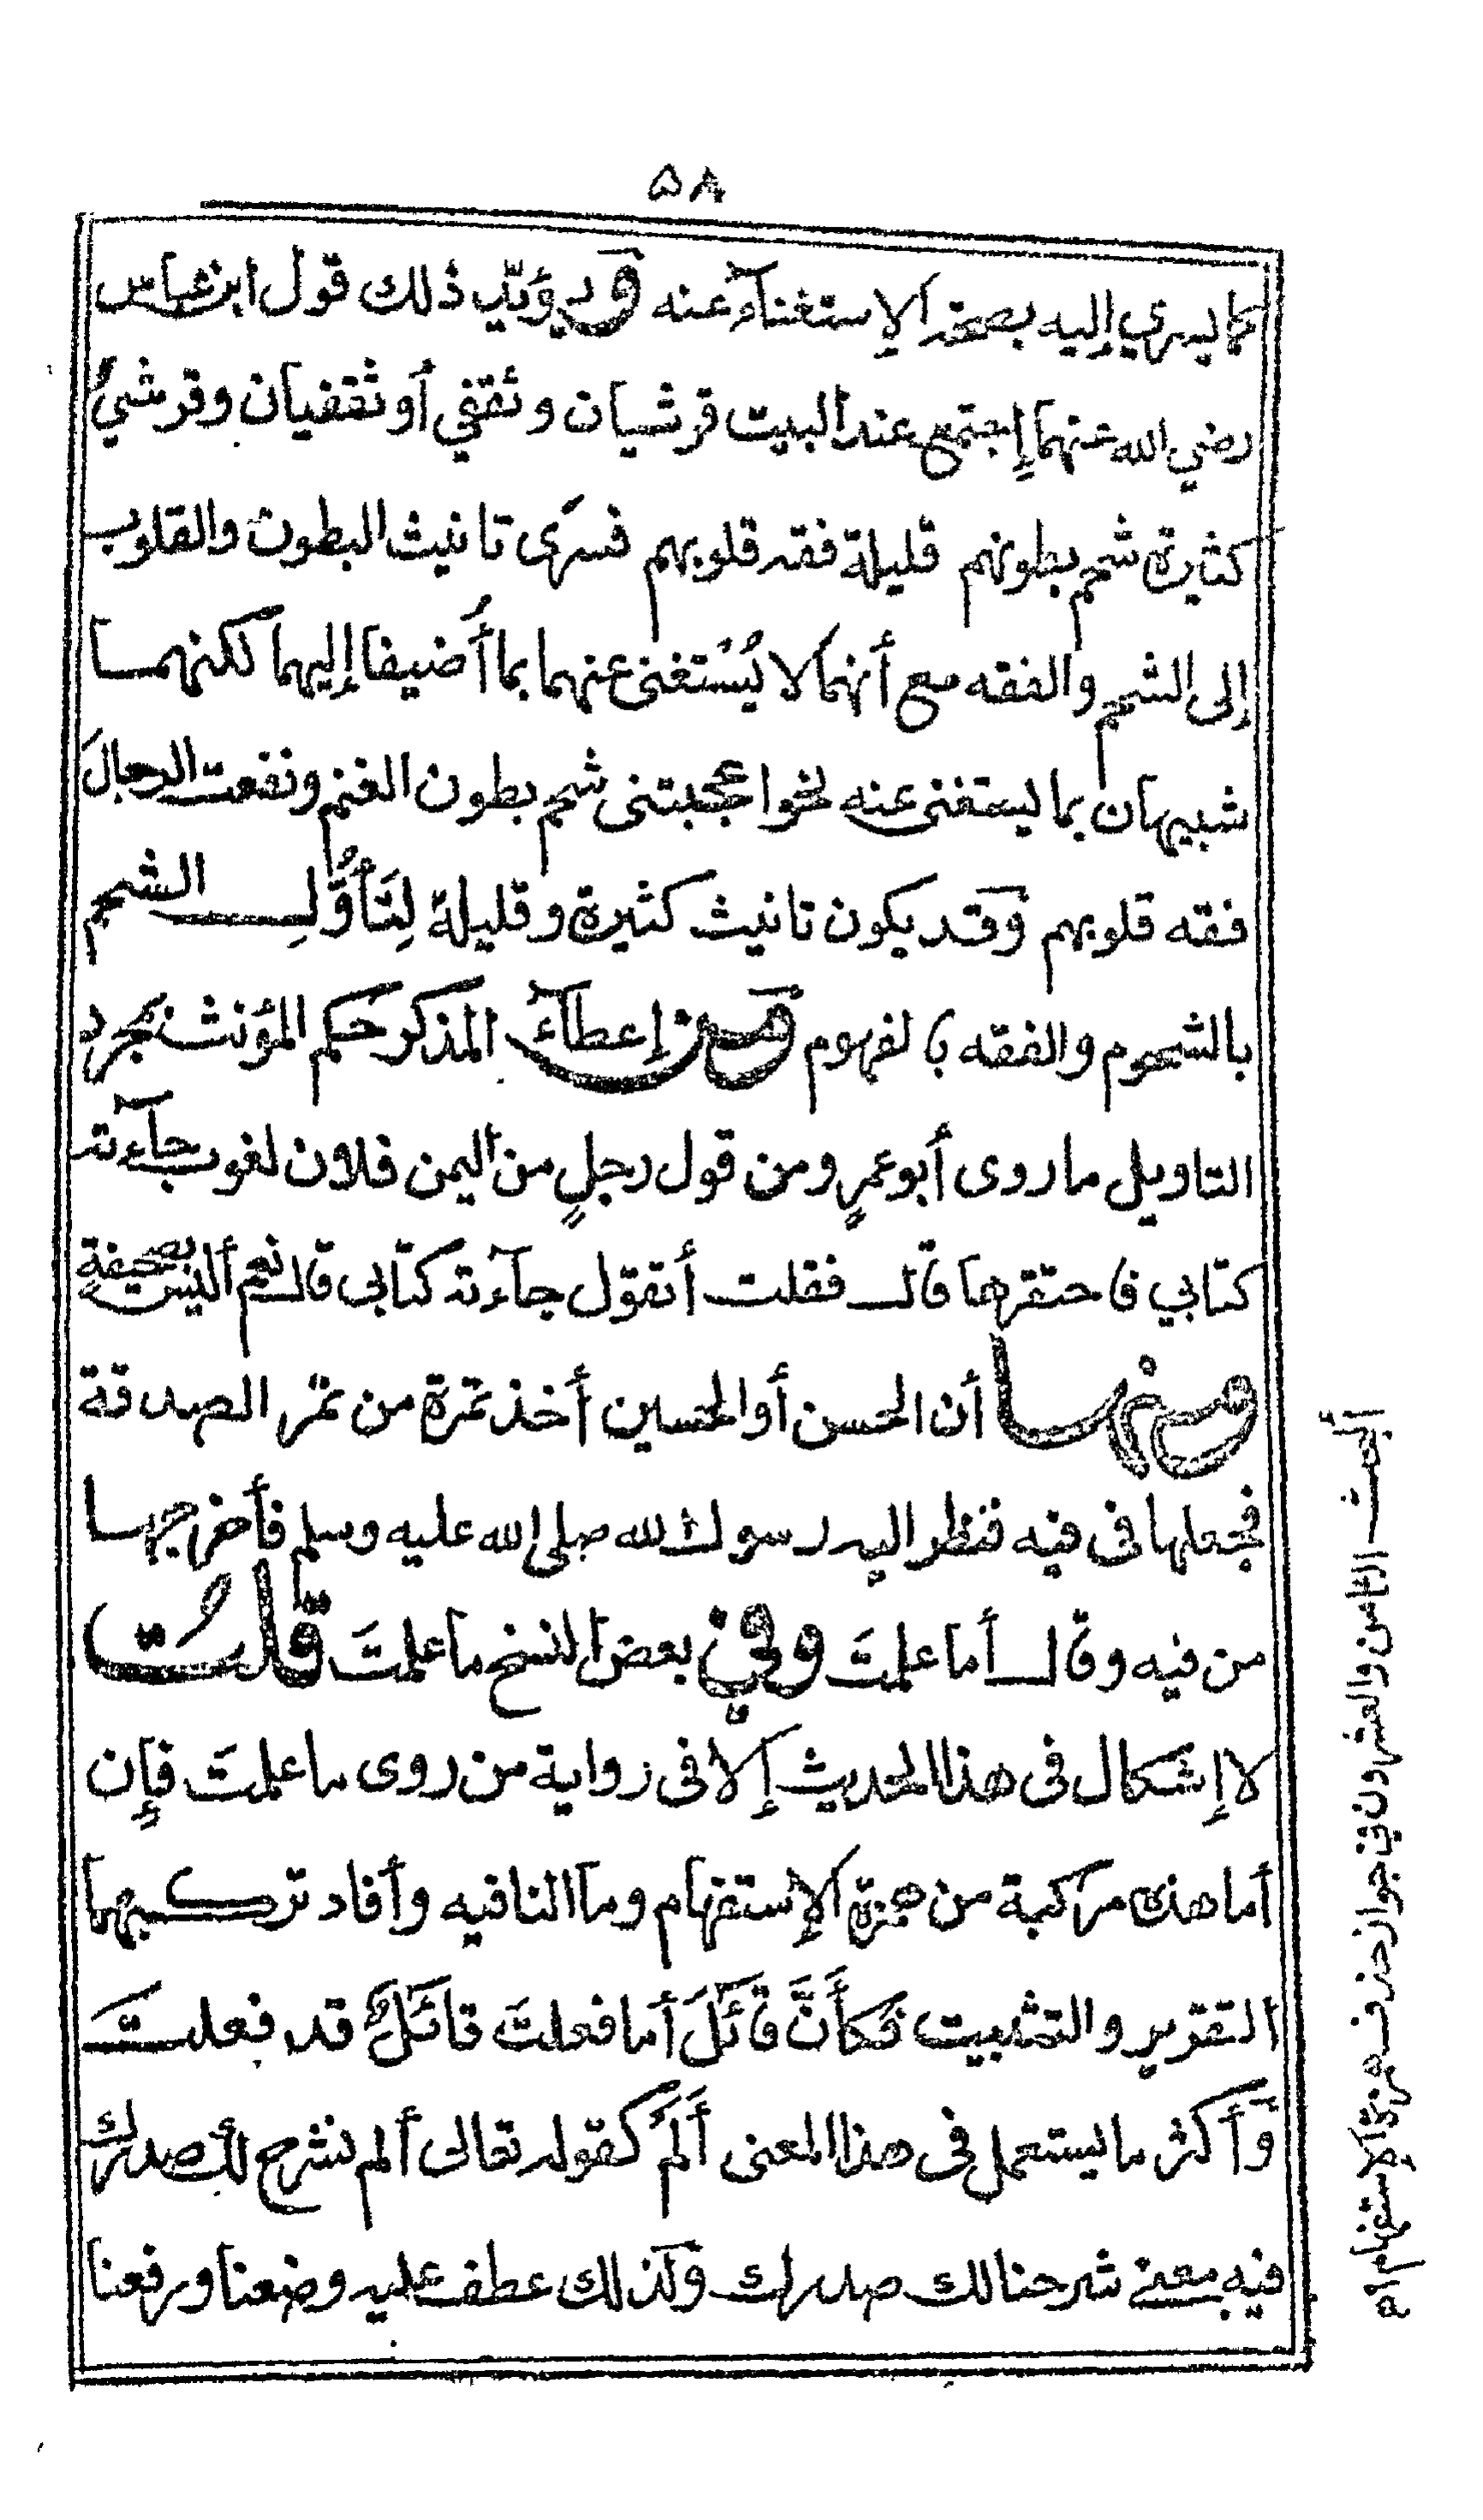 ٥٨
كما يسري إليه بصحة الإستغناء عنه ويؤيّد ذلك قول ابن عباس
رضي الله عنهما إجتمع عند البيت قرشيان وثقفي أو ثقفيان وقرشيّ
كثيرة شحم بطونهم قليلة فقه قلوبهم فسرى تانيث البطون والقلوب
إلى الشحم والفقه مع أنهما لا يُسْتغنى عنهما بما أُضيفا إليهما لكنهما
شبيهان بما يستغنى عنه نحو اعجبتنى شحم بطون الغنم ونفعت الرجالَ
فقه قلوبهم وقد يكون تانيث كثيرة وقليلة لِتَأوُّلِ الشحم
بالشحوم والفقه بالفهوم ومن إعطاء المذكر حكم المؤنث بمجرد
التاويل ما روى أبو عمرٍو من قول رجلٍ من اليمن فلان لغوب جآءته
كتابي فاحتقرها قال فقلت أتقول جآءته كتابى قال نعم أليس بصحيفةٍ
ومنها أن الحسن أو الحسين أخذ تمرة من تمر الصدقة
فجعلها فى فيه فنظر اليه رسول الله صلى الله عليه وسلم فأخرجها
من فيه وقال أما علمتَ وفي بعض النسخ ما علمتَ قلتُ
لا إشكال فى هذا الحديث إلا فى رواية من روى ما علمتَ فإن
أما هذه مركبة من همزة الإستفهام وما النافيه وأفاد تركيبهما
التقرير والتثبيت فكأنَّ قائلَ أما فعلتَ قائلٌ قد فعلتَ
وأكثر ما يستعمل فى هذا المعنى أَلَمْ كقوله تعالى ألم نشرح لك صدرك
فيه بمعنى شرحنا لك صدرك ولذلك عطف عليه وضعنا ورفعنا
البحث الثامن والعشرون في جواز حذف همزة الإستفهام اه